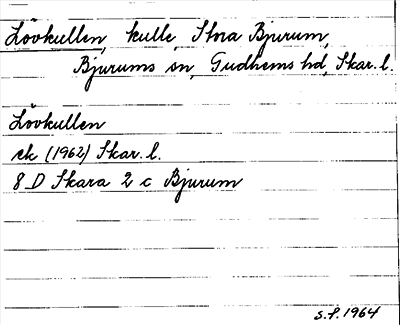 Lövkullen, kulle, Stora Bjurum,
Bjurums sn, Gudhems hd, Skar. l.
Lövkullen
ek (1962) Skar. l.
8 D Skara 2 c Bjurum
S.F. 1964